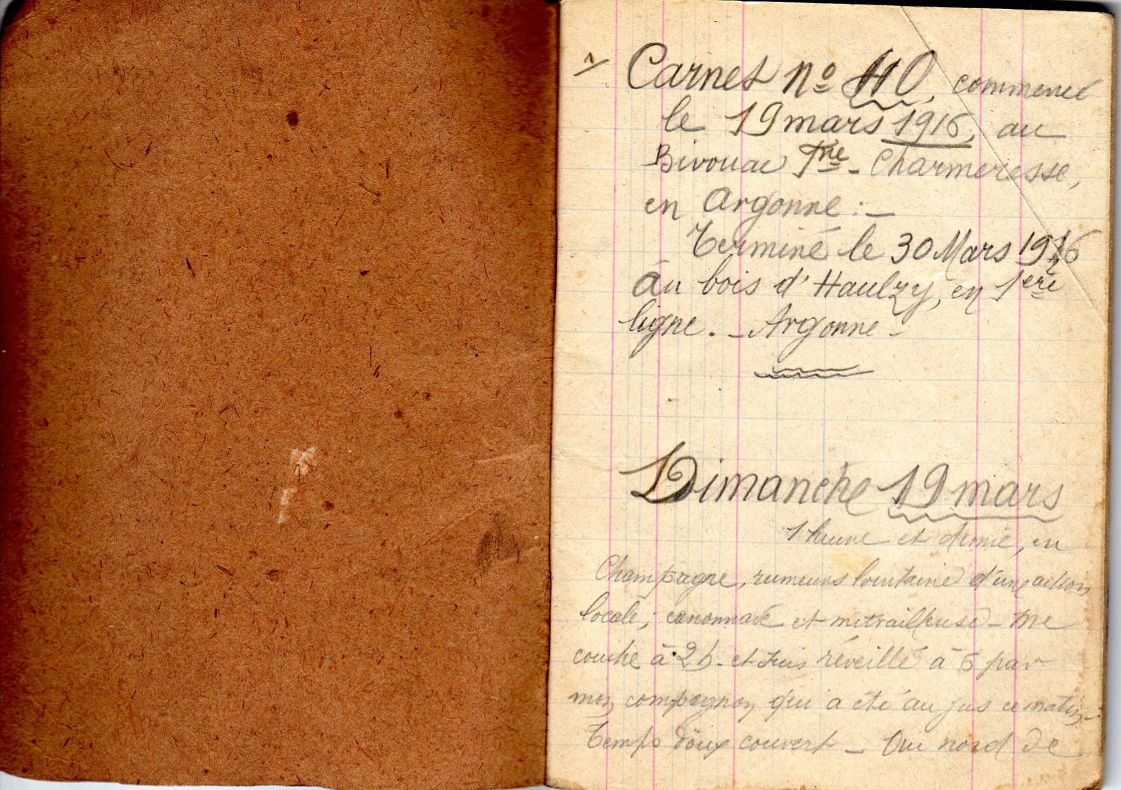 1/ Carnet nº 40, commencé
le 19 mars 1916, au
Bivouac Fme - Charmeresse,
en Argonne : -
Terminé le 30 Mars 1916
au bois d'Hauzy, en 1ere
ligne. - Argonne -
Dimanche 19 mars
1 heure et demie, en
Champagne, rumeurs lointaine d'une action
locale, canonnade et mitrailleuse - Me
couche à 2 h. et suis réveillé à 6 par
mon compagnon qui a été au jus ce matin -
Temps doux couvert - Au nord de